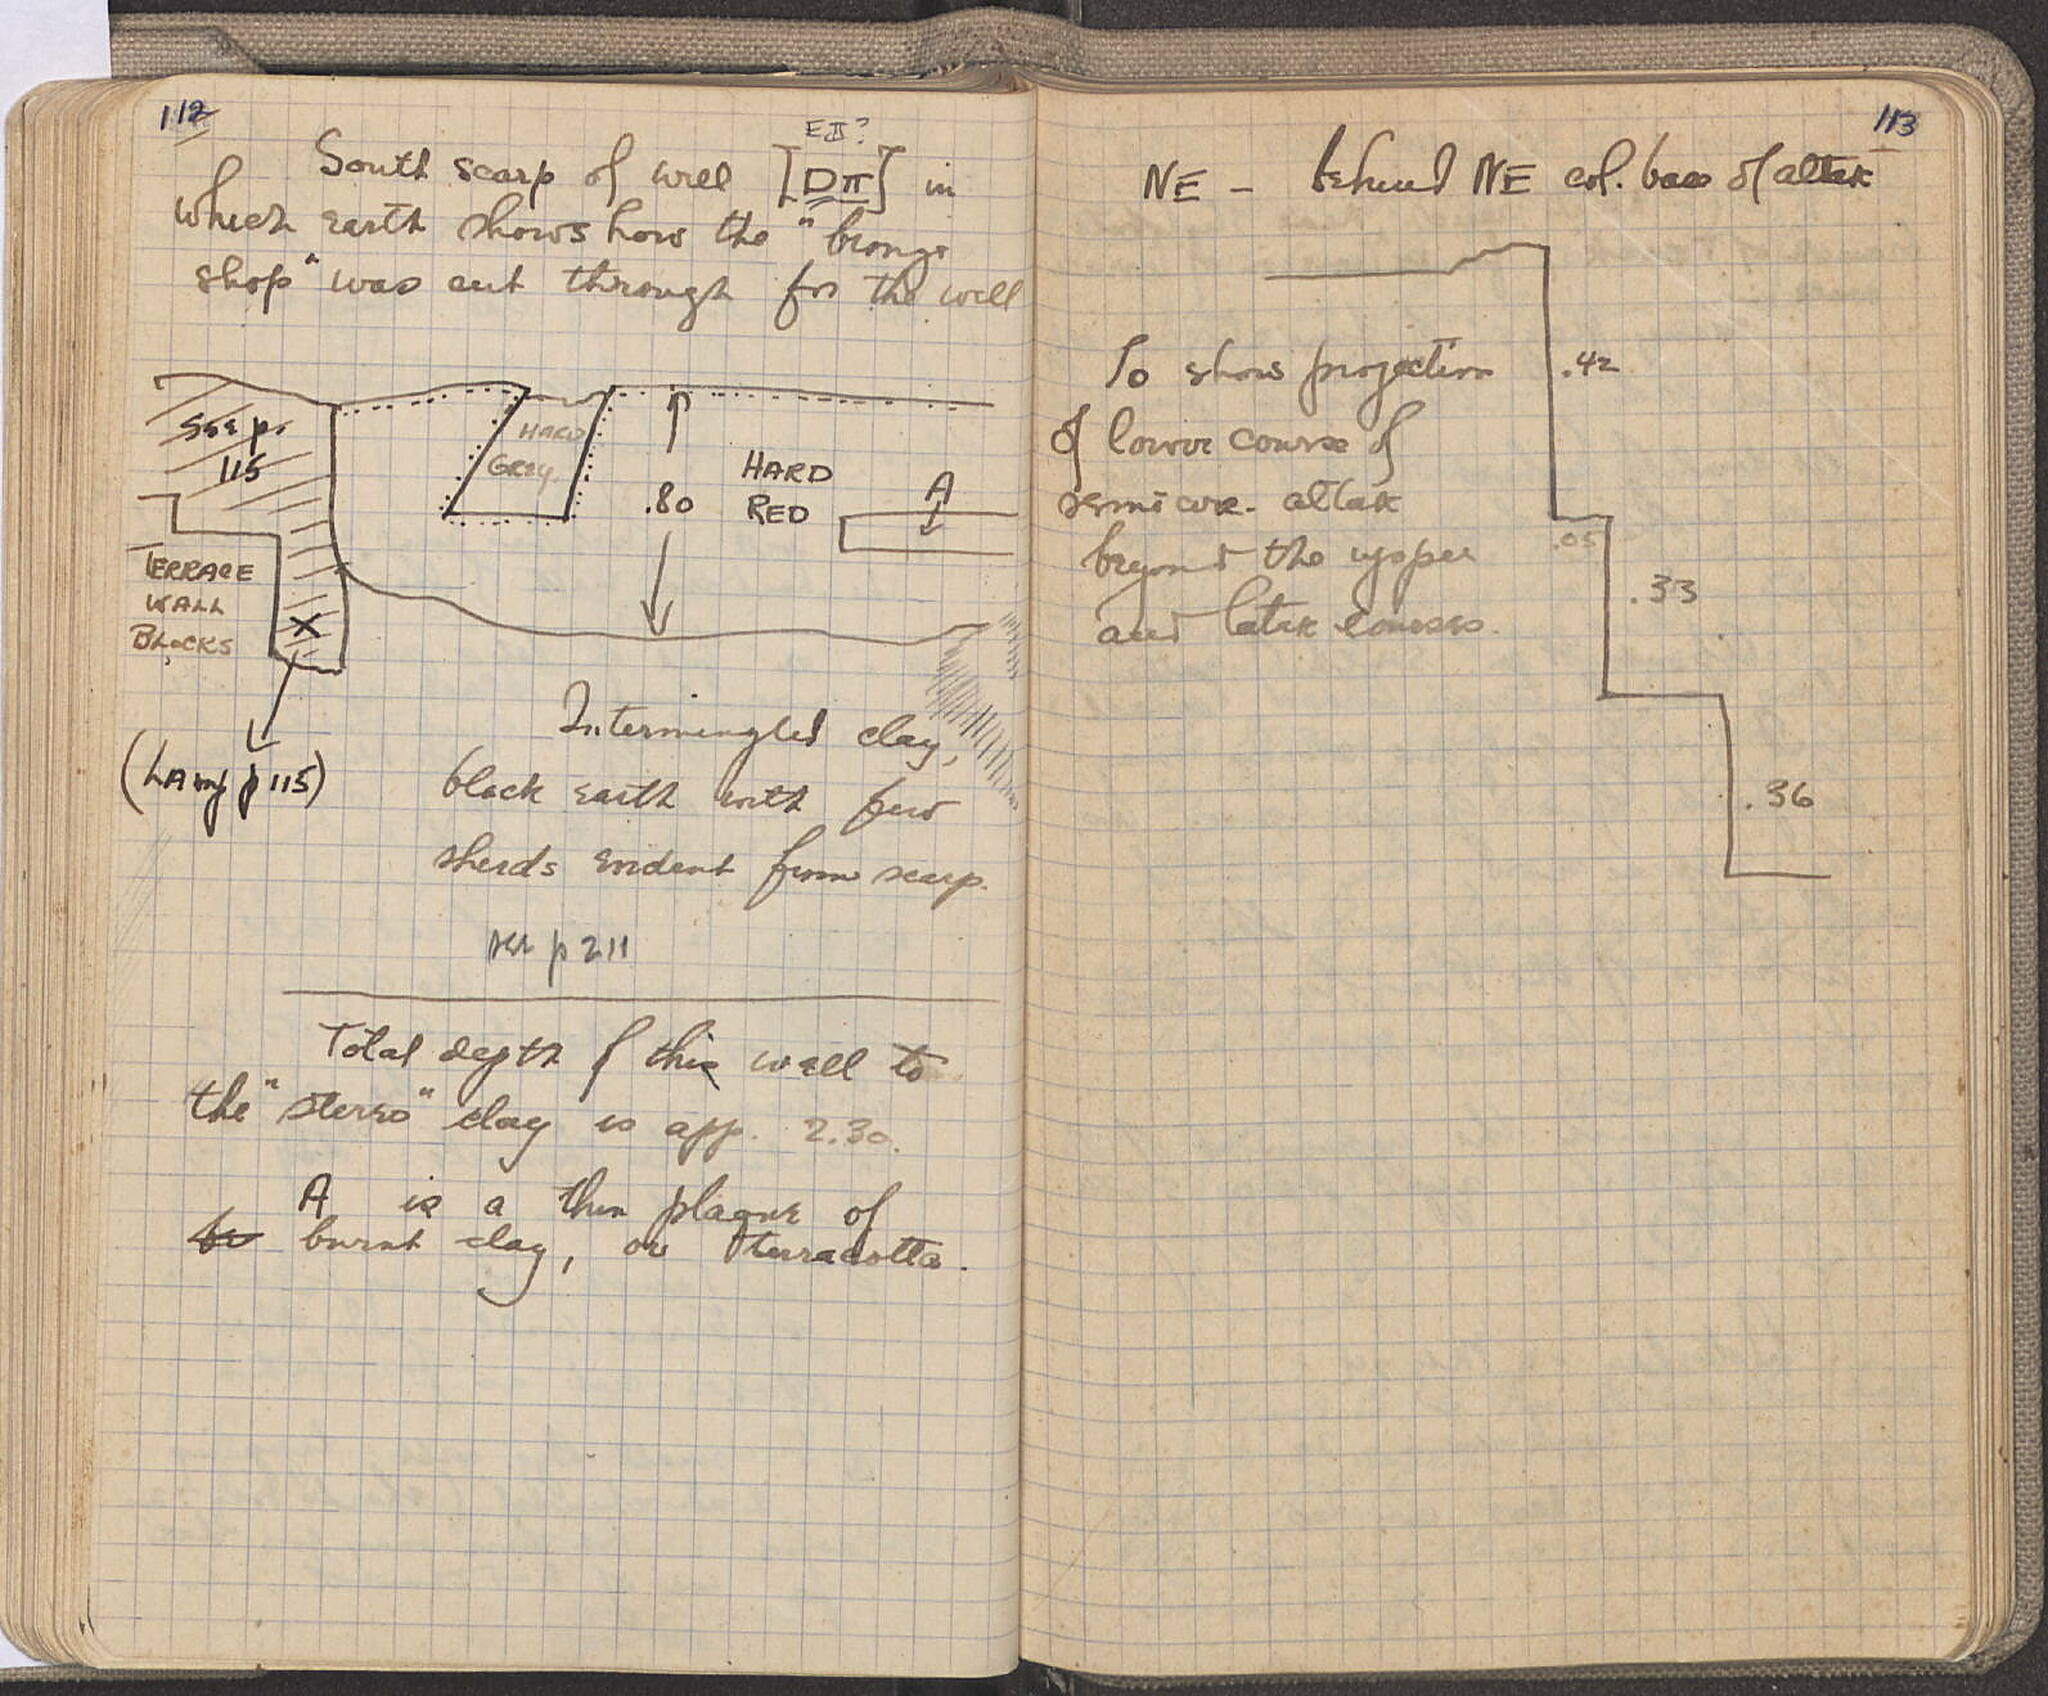 112
EII?
South scarp of well [DII] in
which earth shows how the "bronze
shop" was cut through for the well
See p.
115
HARD
GREY.
.80
HARD
RED
A
TERRACE
WALL
BLOCKS
X
(LAmp p 115)
Intermingled clay,
black earth with few
sherds evident from scarp.
see p 211
Total depth of this well to
the "stereo" clay is app. 2.30.
A is a thin plaque of
burnt clay, or terracotta.
113
NE - behind NE col. base of altar
.42
To show projection
of lower course of
semicir. altar
beyond the upper
and later courses.
.05
.33
.36